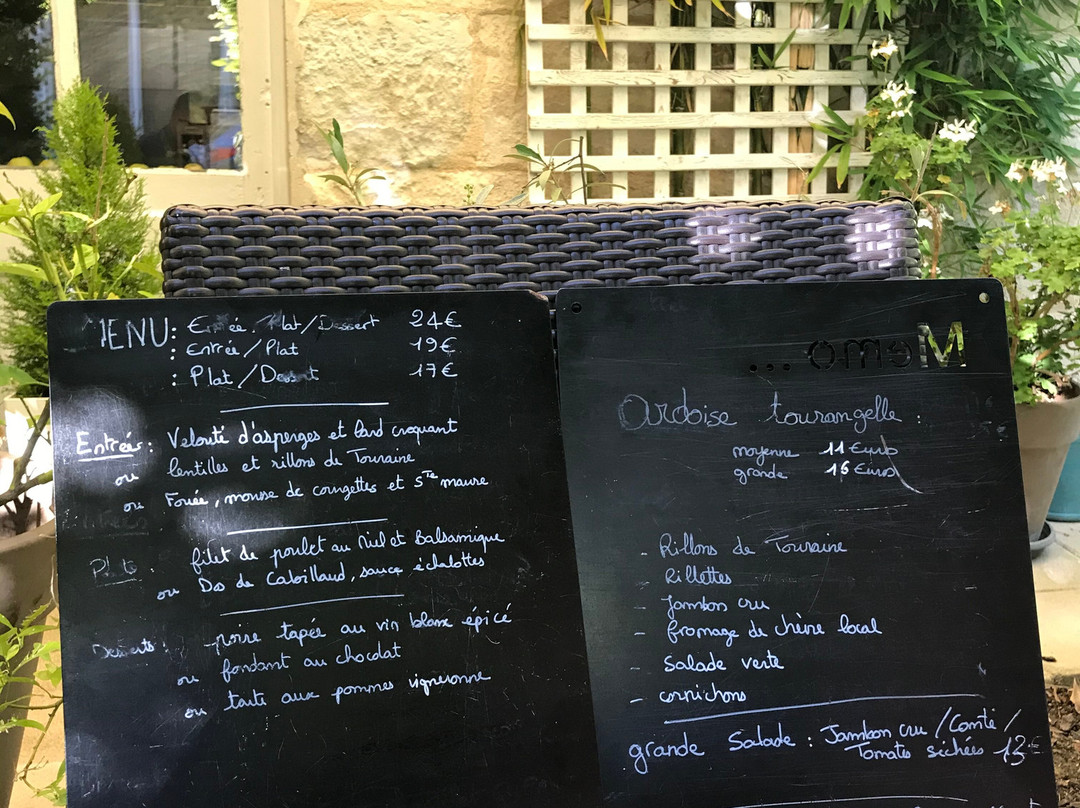 MENU: Entrée/Plat/Dessert 24€
: Entrée/Plat 19€
: Plat/Dessert 17€
Entrées: Velouté d'asperges et lard croquant
ou lentilles et rillons de Touraine
ou Fouée, mousse de courgettes et Ste maure
Plats: filet de poulet au Miel et Balsamique
ou Dos de Cabillaud, sauce échalottes
Desserts: poire tapée au vin blanc épicé
ou fondant au chocolat
ou tarte aux pommes vigneronne
Memo...
Ardoise tourangelle:
moyenne 11 Euros
grande 16 Euros
- Rillons de Touraine
- Rillettes
- Jambon cru
- fromage de chèvre local
- Salade verte
- cornichons
grande Salade: Jambon cru/Comté/
Tomates séchées 13€